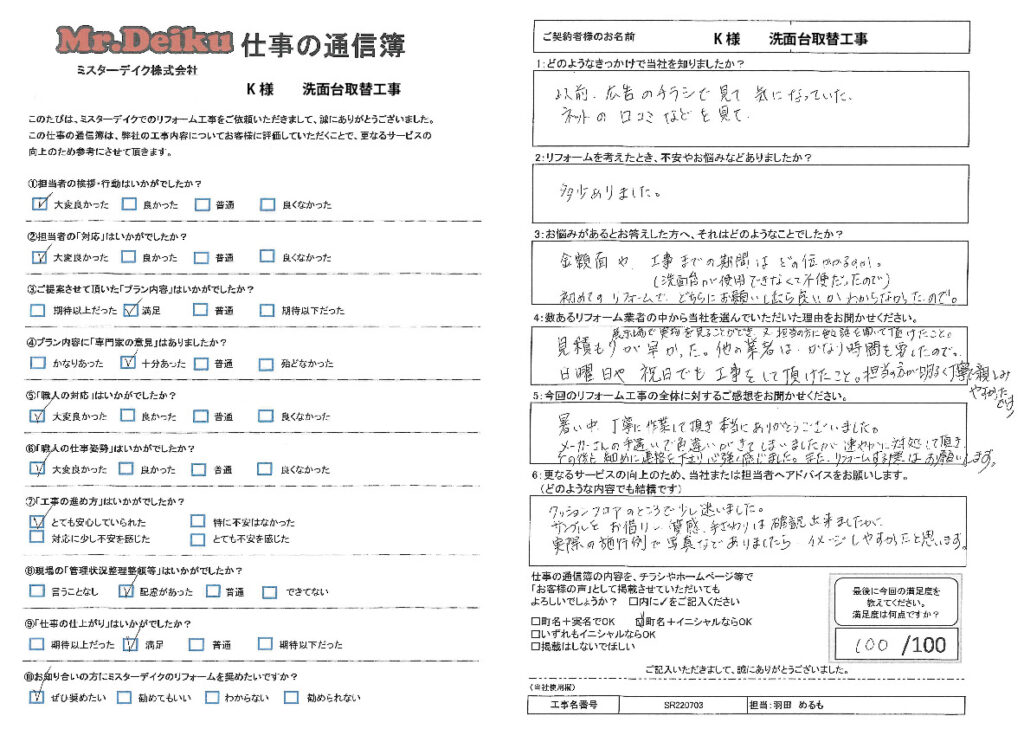 Mr.Deiku 仕事の通信簿
ミスターデイク株式会社
K 様 洗面台取替工事
このたびは、ミスターデイクでのリフォーム工事をご依頼いただきまして、誠にありがとうございました。
この仕事の通信簿は、弊社の工事内容についてお客様に評価していただくことで、更なるサービスの
向上のため参考にさせて頂きます。
①担当者の挨拶・行動はいかがでしたか?
☑ 大変良かった □ 良かった □ 普通 □ 良くなかった
②担当者の「対応」はいかがでしたか?
☑ 大変良かった □ 良かった □ 普通 □ 良くなかった
③ご提案させて頂いた「プラン内容」はいかがでしたか?
□ 期待以上だった ☑ 満足 □ 普通 □ 期待以下だった
④プラン内容に「専門家の意見」はありましたか?
□ かなりあった ☑ 十分あった □ 普通 □ 殆どなかった
⑤「職人の対応」はいかがでしたか?
☑ 大変良かった □ 良かった □ 普通 □ 良くなかった
⑥「職人の仕事姿勢」はいかがでしたか?
☑ 大変良かった □ 良かった □ 普通 □ 良くなかった
⑦「工事の進め方」はいかがでしたか?
☑ とても安心していられた □ 特に不安はなかった
□ 対応に少し不安を感じた □ とても不安を感じた
⑧現場の「管理状況整理整頓等」はいかがでしたか?
□ 言うことなし ☑ 配慮があった □ 普通 □ できてない
⑨「仕事の仕上がり」はいかがでしたか?
□ 期待以上だった ☑ 満足 □ 普通 □ 期待以下だった
⑩お知り合いの方にミスターデイクのリフォームを奨めたいですか?
☑ ぜひ奨めたい □ 勧めてもいい □ わからない □ 勧められない
ご契約者様のお名前 K 様 洗面台取替工事
1:どのようなきっかけで当社を知りましたか?
以前、広告のチラシで見て気になっていた、
ネットの口コミなどを見て、
2:リフォームを考えたとき、不安やお悩みなどありましたか?
多少ありました。
3:お悩みがあるとお答えした方へ、それはどのようなことでしたか?
金額面や、工事までの期間はどの位かかるのか。
(洗面台が使用できなくて不便だったので)
初めてのリフォームで、どちらにお願いしたら良いかわからなかったので。
4:数あるリフォーム業者の中から当社を選んでいただいた理由をお聞かせください。
展示場で実物を見ることができ、又、担当の方に
見積もりが早かった。他の業者は、かなり時間を要したので。
日曜日や祝日でも工事をして頂けたこと。担当の方が明るく丁寧で親しみ
やすかった
です
5:今回のリフォーム工事の全体に対するご感想をお聞かせください。
暑い中、丁寧に作業して頂き本当にありがとうございました。
メーカーさんの手違いで色違いがきてしまいましたが、速やかに対処して頂き、
その後も細めに連絡を下さり心強く感じました。また、リフォームする際はお願いします。
6:更なるサービスの向上のため、当社または担当者へアドバイスをお願いします。
(どのような内容でも結構です)
クッションフロアのところで少し迷いました。
サンプルをお借りし、質感、手ざわりは確認出来ましたが、
実際の施行例で写真などありましたら、イメージしやすかったと思います。
仕事の通信簿の内容を、チラシやホームページ等で
「お客様の声」として掲載させていただいても
よろしいでしょうか? □内に✓をご記入ください
□町名+実名でOK ☑町名+イニシャルならOK
□いずれもイニシャルならOK
□掲載はしないでほしい
最後に今回の満足度を
教えてください。
満足度は何点ですか?
100 /100
ご記入いただきまして、誠にありがとうございました。
(当社使用欄)
工事名番号 SR220703 担当:羽田 めるも